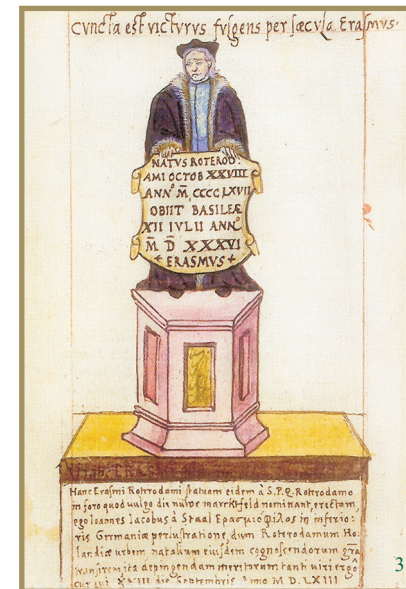 CVNCTA EST VICTVRVS FVLGENS PER SÆCVLA ERASMVS·
NATVS ROTEROD
AMI OCTOB XXVIII
ANN° M̄ CCCC LXVII
OBIIT BASILEÆ
XII IVLII ANN°
M̄ D̄ XXXVI
+ ERASMVS +
Hanc Erasmi Rotrodami statuam eidem à S.P.Q. Rotrodamo
in foro quod vulgo die nüwe marcktfeld nominant, erectam,
ego Ioannes Iacobus à Staal Ερασμιοφιλος in inferio:
ris Germaniæ perlustratione, dum Rotrodamum Ho,
landiæ urbem natalium eiusdem cognoscendorum gra
transirem, ita depingendam meritorum tanti viri ergô
curavi XXIII die Septembris Anno M D. LXIII
3